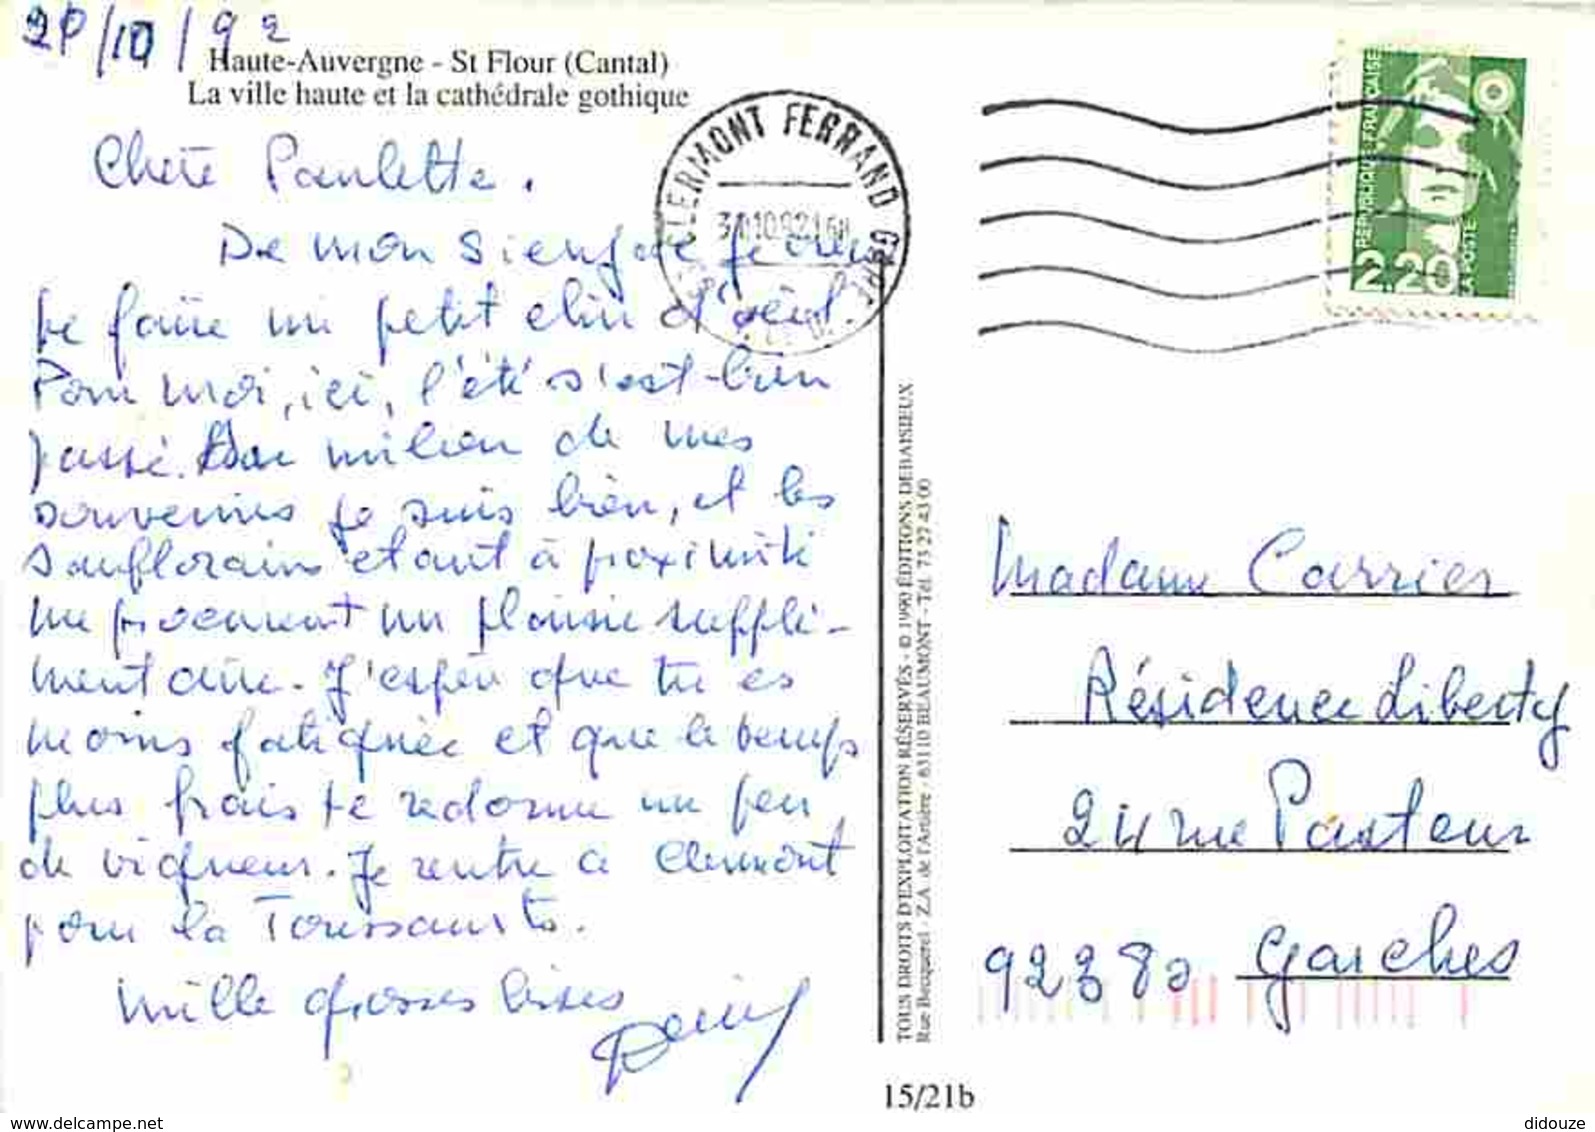 29/10/92
Haute-Auvergne - St Flour (Cantal)
La ville haute et la cathédrale gothique
Chère Paulette.
De mon je viens
te faire un petit clin d'œil.
Pour moi, ici, l'été s'est bien
passé. Au milieu de mes
souvenirs je suis bien, et les
sanflorains étant à proximité
me procurent un plaisir supplé-
mentaire. J'espère que tu es
moins fatiguée et que le temps
plus frais te redonne un peu
de vigueur. Je rentre à Clermont
pour la Toussaints.
Mille grosses bises
CLERMONT FERRAND
RÉPUBLIQUE FRANÇAISE
2,20
LA POSTE
TOUS DROITS D'EXPLOITATION RÉSERVÉS - © 1990 ÉDITIONS DEBAISIEUX
Rue Becquerel - Z.A. de l'Artière - 63110 BEAUMONT - Tél. 73 27 43 00
Madame Carrier
Résidence Liberty
24 rue Pasteur
92380 Garches
15/21b
www.delcampe.net
didouze